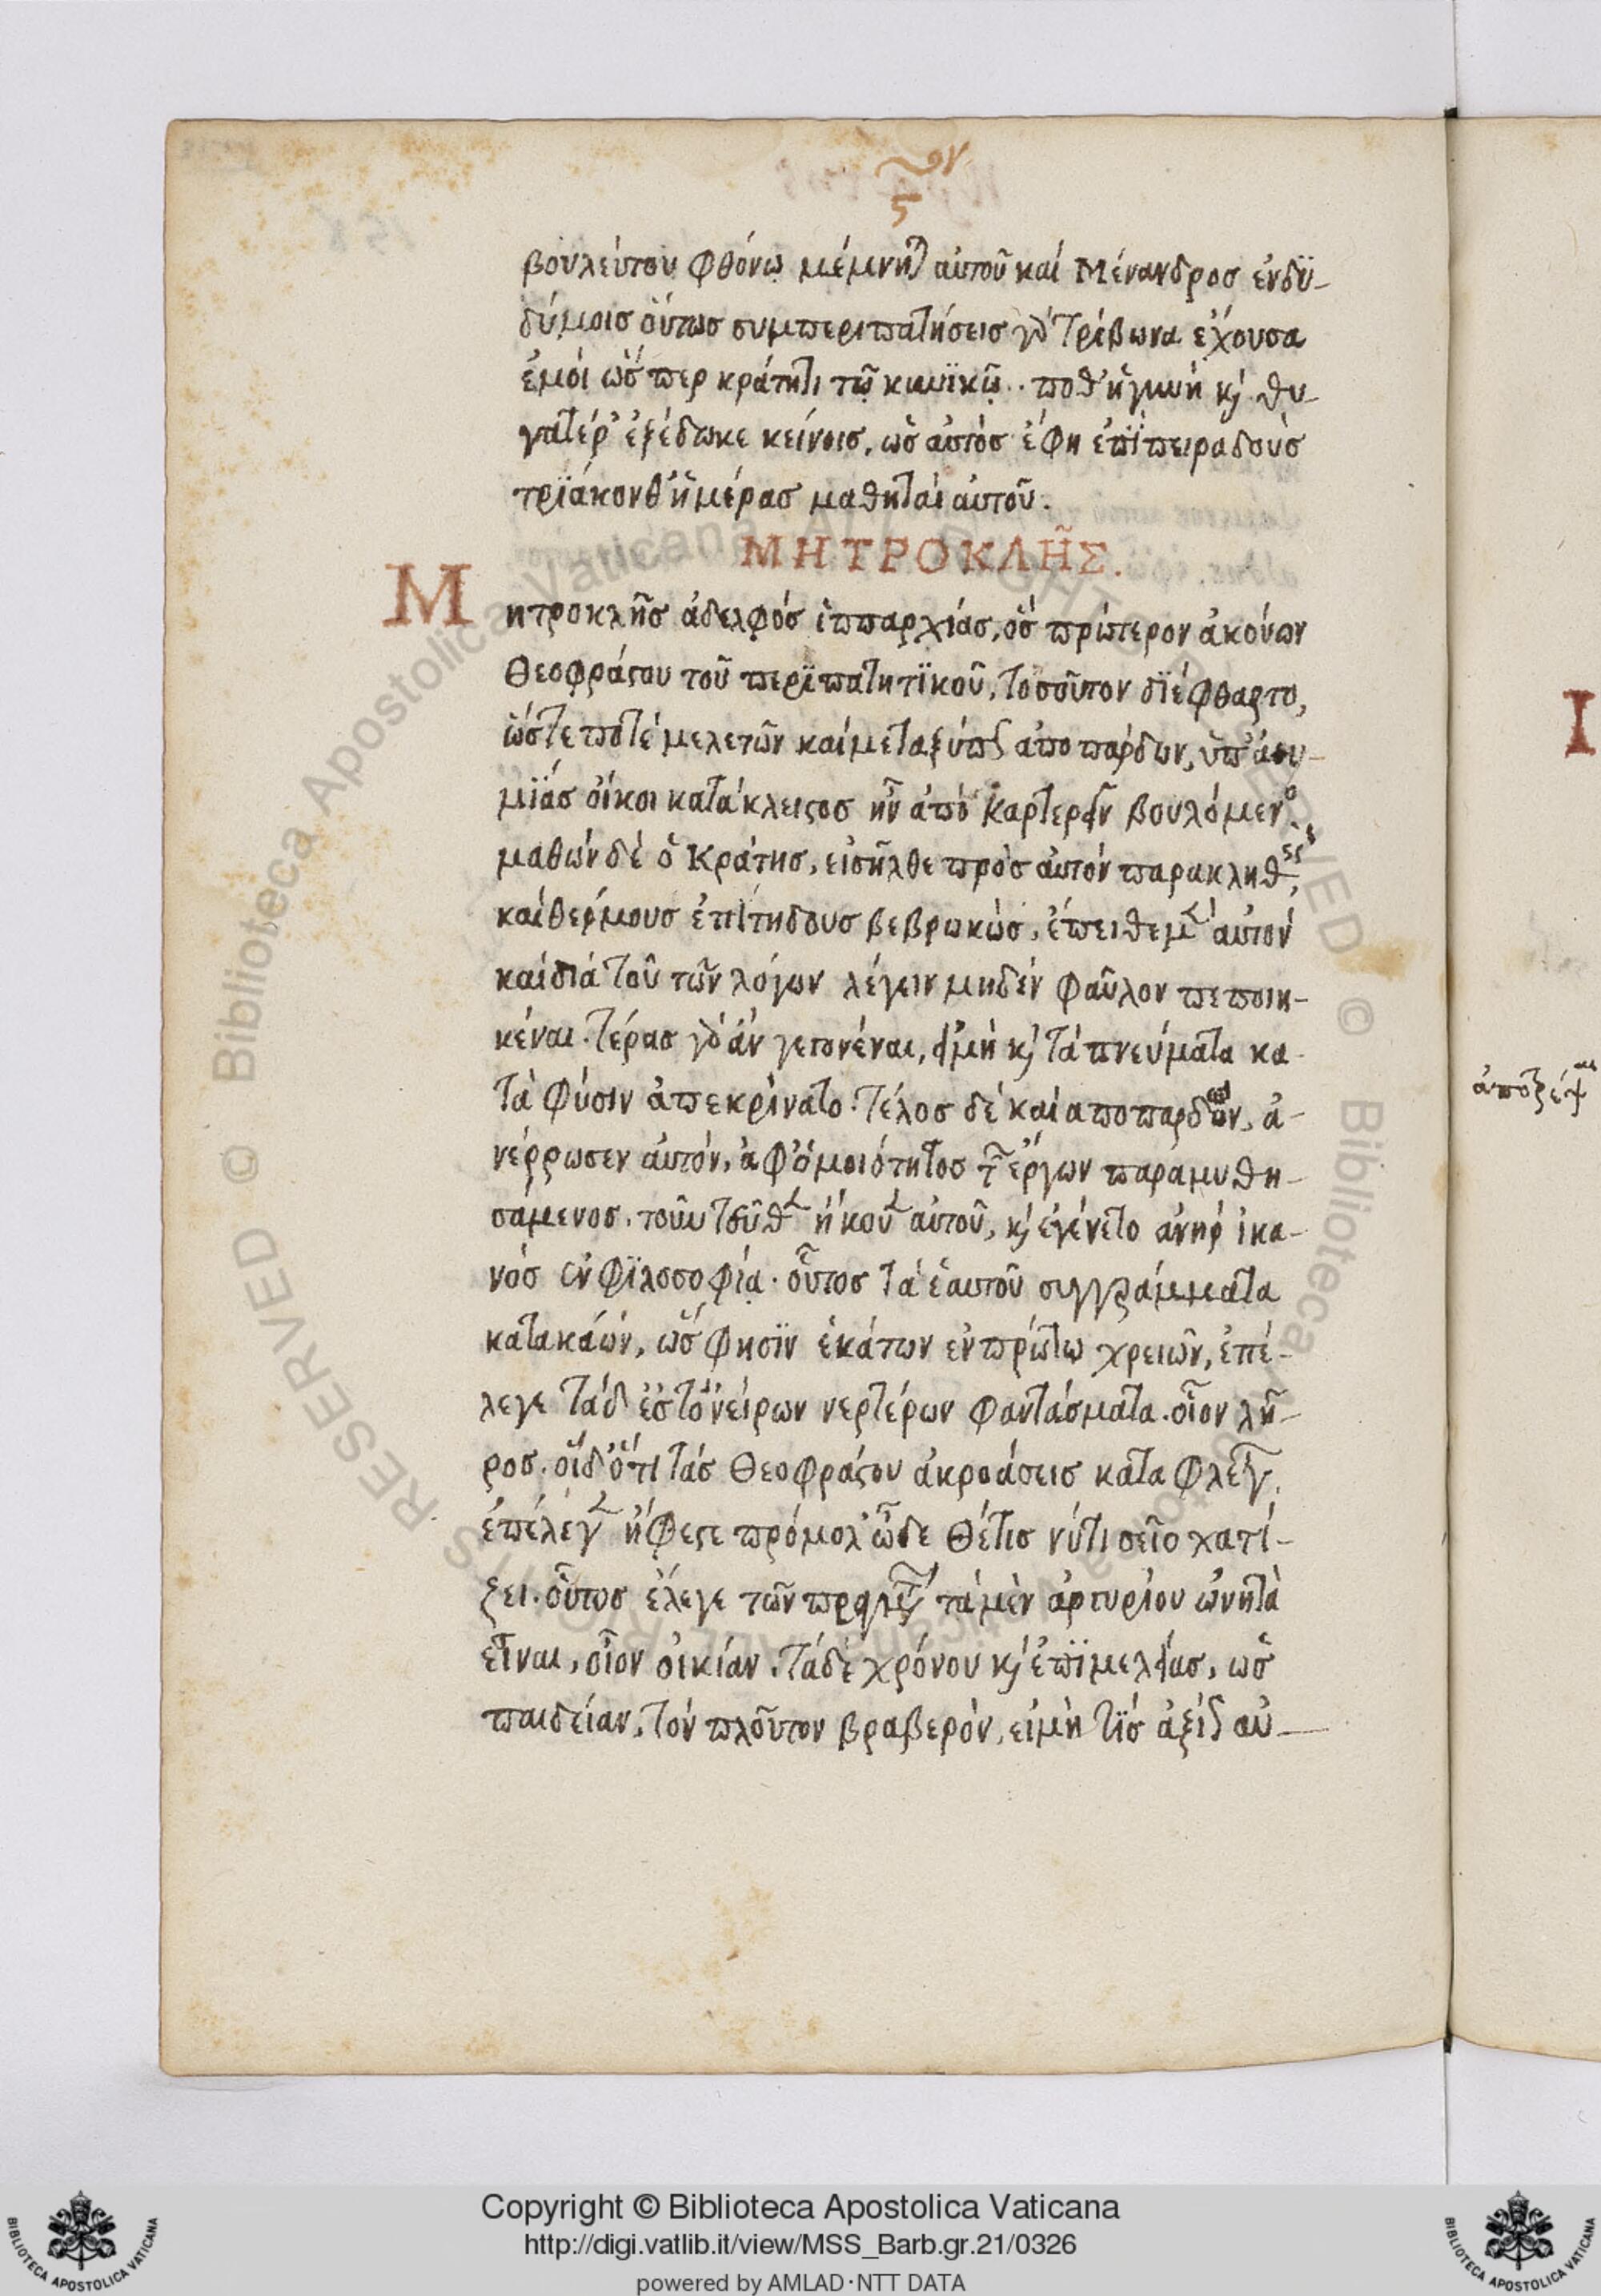 βουλεύτου φθόνω μέμνη) αὐτοῦ καί Μένανδρος ἐνδϋ-
δύμοις οὕτως συμπεριπατήσεις γὸ τρίβωνα ἐχουσα
ἐμοί ὥσπερ κράτητι τῷ κυωϊκῷ.. ποθ' ἡγωή κỳ θυ-
γατέρ' ἐξέδωκε κείνοις, ὡς αὐτός ἔφη ἐπϊ πειρα δούς
τρϊάκονθ' ἡμέρας μαθηταί αὐτοῦ.
ΜΗΤΡΟΚΛΗ͂Σ.
Μητροκλῆς ἀδελφός ἱππαρχίας, ὅς πρώτερον ἀκούων
Θεοφράστου τοῦ περϊπατητϊκοῦ, τοσοῦτον δϊέφθαρτο,
ὥστε ποτέ μελετῶν καί μεταξύ πς ἀποπαρδων, ὑπ' ἀθυ-
μϊάς οἴκοι κατάκλειστος ἦν ἀπό καρτερεῖν βουλόμενο.
μαθών δέ ὁ Κράτης, εἰσῆλθε πρὸς αὐτόν παρακληθεὶς,
καί θέρμους ἐπίτηδους βεβρωκώς, ἔπειθε μ αὐτόν
καί διά τοῦ τῶν λόγων λέγειν μηδέν φαῦλον πεποιη-
κέναι. τέρας γὸ ἄν γεγονέναι, εἰ μή κỳ τά πνεύματα κα-
τὰ φύσιν ἀπεκρίνατο. Τέλος δέ καί αποπαρδων, ἀ-
νέρρωσεν αὐτόν, ἀφ' ὁμοιότητος τ ἔργων παραμυθη-
σάμενος. τοὐντεῦθ ἤκου αὐτοῦ, κỳ ἐγένετο ἀνήρ ἱκα-
νός ἐν φϊλοσοφίᾳ. οὗτος τά ἑαυτοῦ συγγράμματα
κατακάων, ὥς φησϊν ἑκάτων ἐν πρώτω χρειῶν, ἐπέ-
λεγε τάδ' ἐστ' ὀνείρων νερτέρων φαντάσματα. οἷον λῆ-
ρος. οἵδ' ὅτι τάς Θεοφράστου ἀκροάσεις καταφλέγ,
ἐπέλεγ ἥφεστε πρόμολ' ὧδε Θέτις νύ τι σεῖο χατί-
ζει. οὗτος ἔλεγε τῶν πραγμτ τά μὲν ἀργυρίου ὠνητὰ
εἶναι, οἷον οἰκίαν. τάδε χρόνου κỳ ἐπϊμελείας, ὡς
παιδείαν. τόν πλοῦτον βραβερόν, εἰ μή τϊς ἀξίς αὐ-
Copyright © Biblioteca Apostolica Vaticana
http://digi.vatlib.it/view/MSS_Barb.gr.21/0326
powered by AMLAD·NTT DATA